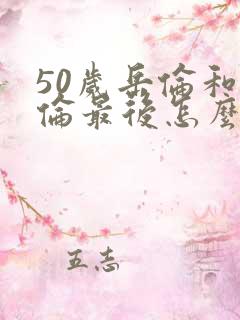 50歲岳倫和
倫最後怎麼
五志